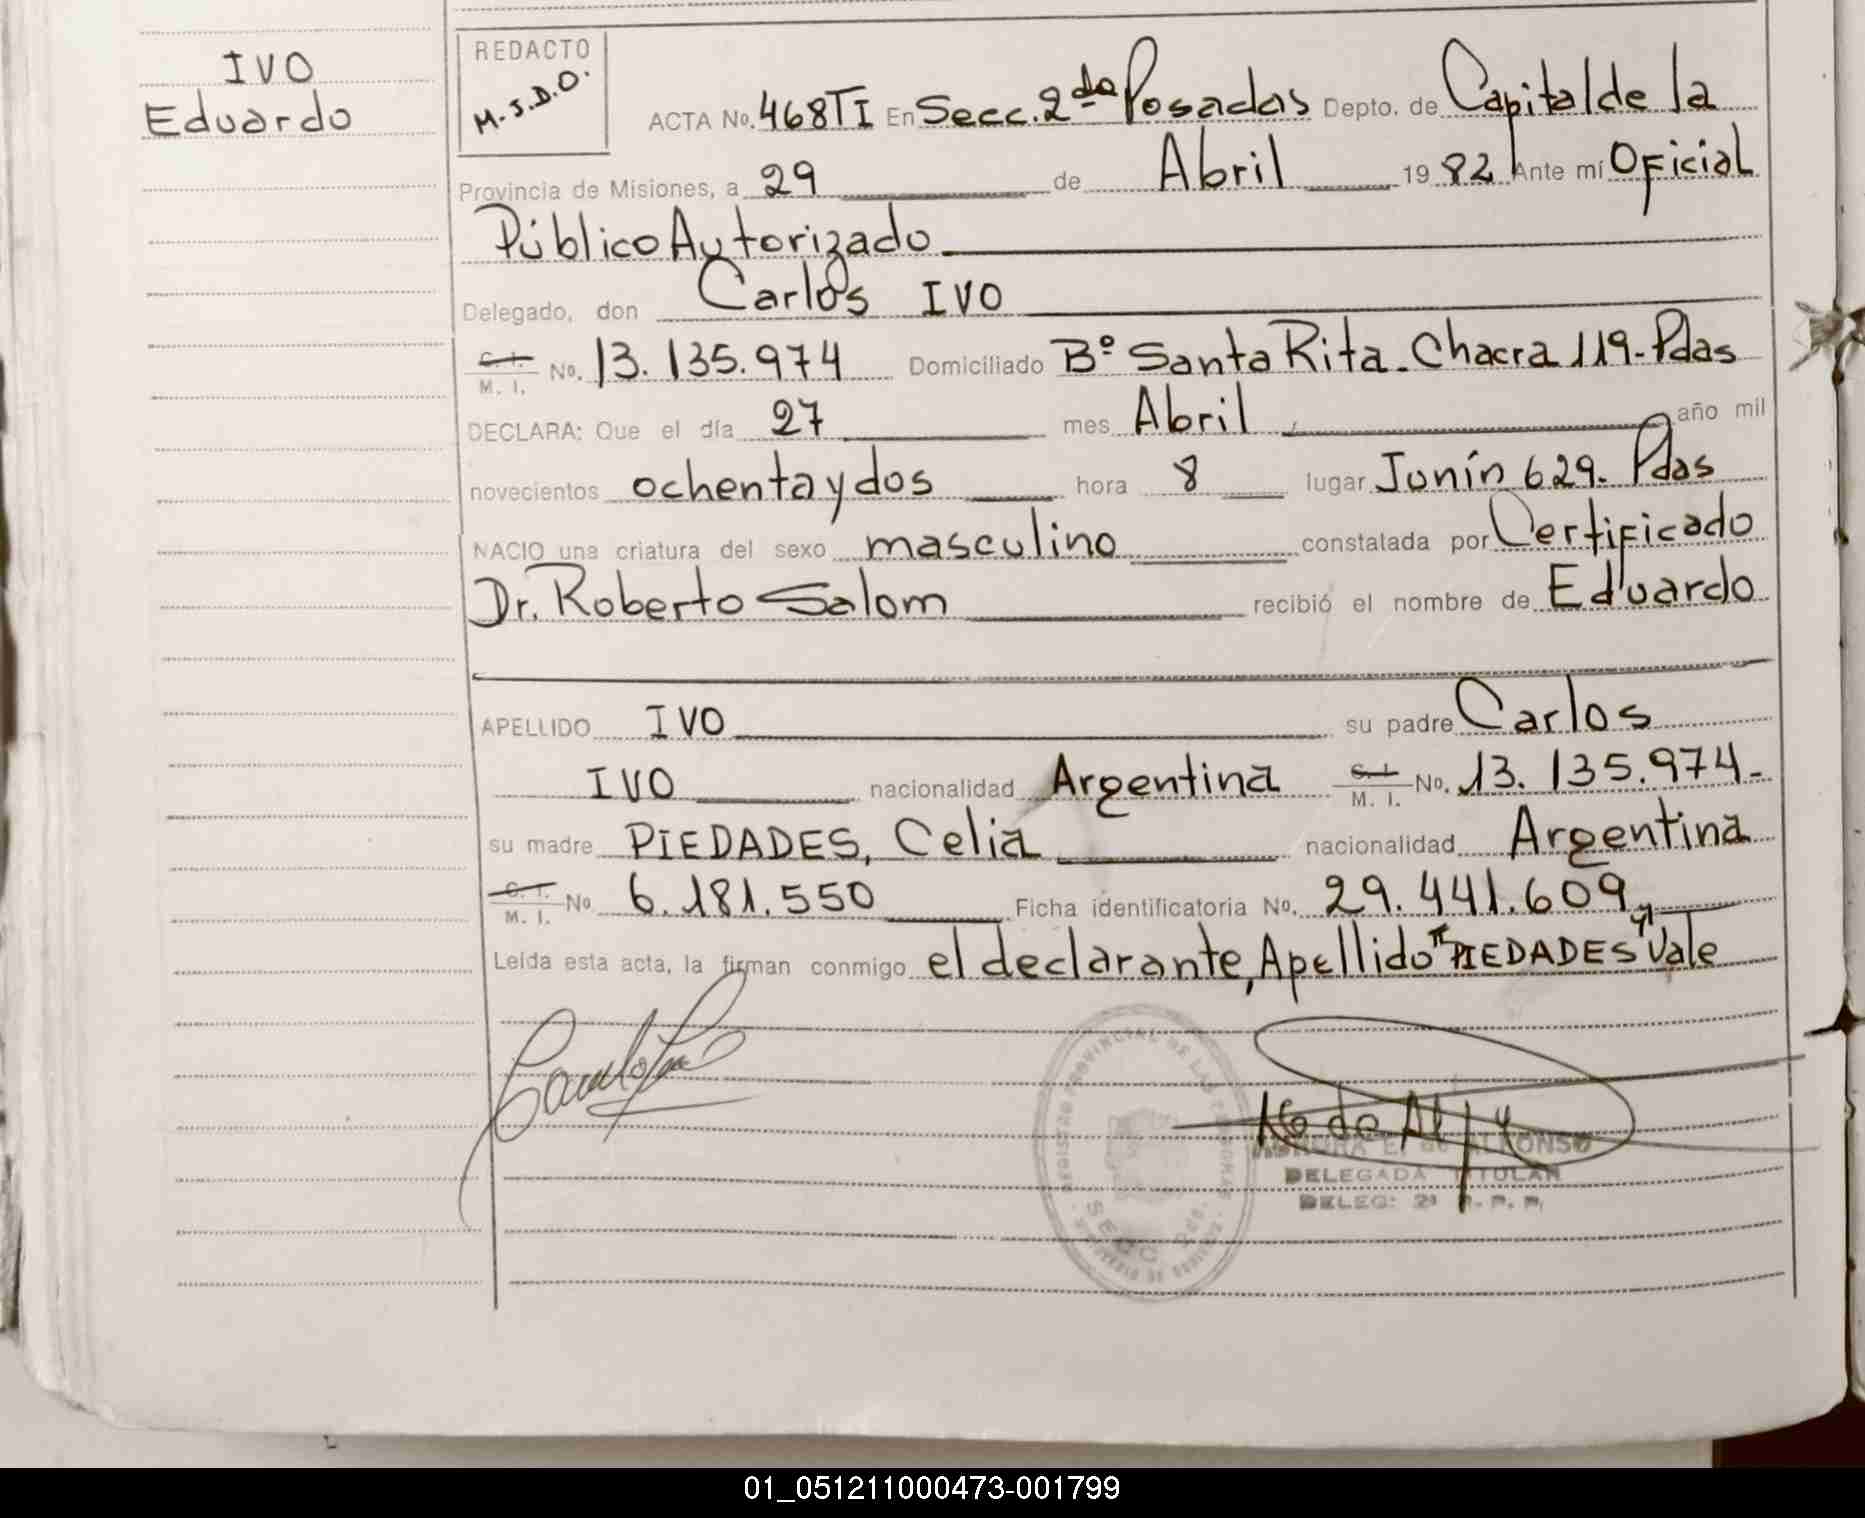 IVO
Eduardo
REDACTO
M.S.D.O.
ACTA No. 468TI En Secc. 2da Posadas Depto. de Capital de la
Provincia de Misiones, a 29 de Abril 1982 Ante mí Oficial
Público Autorizado
Delegado, don Carlos IVO
C. I. M. I. No. 13.135.974 Domiciliado Bº Santa Rita. Chacra 119-Pdas
DECLARA: Que el día 27 mes Abril año mil
novecientos ochenta y dos hora 8 lugar Junín 629. Pdas
NACIO una criatura del sexo masculino constatada por Certificado
Dr. Roberto Salom recibió el nombre de Eduardo
APELLIDO IVO su padre Carlos
IVO nacionalidad Argentina C. I. M. I. No. 13.135.974-
su madre PIEDADES, Celia nacionalidad Argentina
C. I. M. I. No 6.181.550 Ficha identificatoria No. 29.441.609
Leida esta acta, la firman conmigo el declarante, Apellido "PIEDADES" Vale
REGISTRO PROVINCIAL DE LAS PERSONAS
SECC. 2da.
DE ALFONSO
DELEGADA TITULAR
DELEG: 2ª R. P. P.
01_051211000473-001799